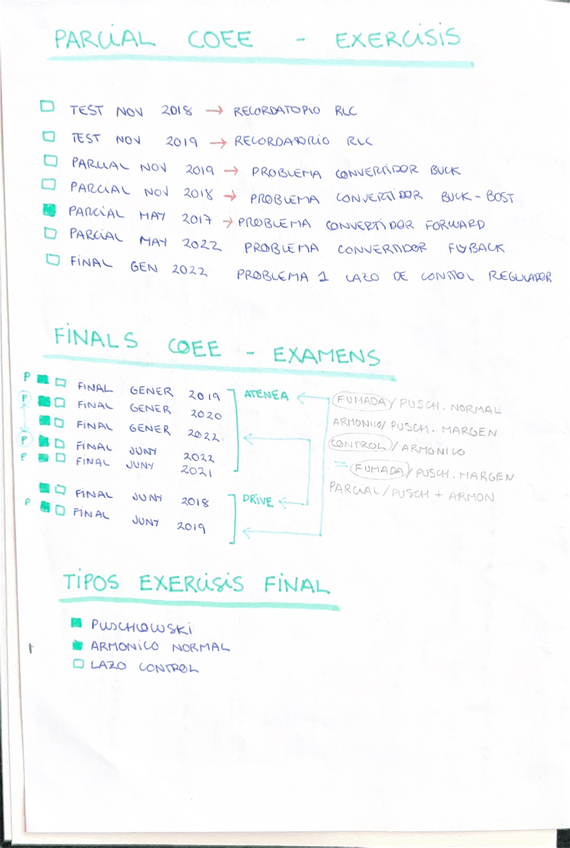 PARCIAL COEE - EXERCISIS
TEST NOV 2018 → RECORDATOPIO RLC
TEST NOV 2019 → RECORDATORIO RLC
PARCIAL NOV 2019 → PROBLEMA CONVERTIDOR BUCK
PARCIAL NOV 2018 → PROBLEMA CONVERTIDOR BUCK-BOST
PARCIAL MAY 2017 → PROBLEMA CONVERTIDOR FORWARD
PARCIAL MAY 2022 PROBLEMA CONVERTIDOR FLYBACK
FINAL GEN 2022 PROBLEMA 1 LAZO DE CONTROL REGULADOR
FINALS COEE - EXAMENS
P FINAL GENER 2019 ATENEA FUMADA/PUSCH. NORMAL
P FINAL GENER 2020 ARMONICO/PUSCH. MARGEN
FINAL GENER 2022 CONTROL/ARMONICO
P FINAL JUNY 2022 FUMADA/PUSCH. MARGEN
P FINAL JUNY 2021 PARCIAL/PUSCH + ARMON
FINAL JUNY 2018 DRIVE
P FINAL JUNY 2019
TIPOS EXERCISIS FINAL
PUSCHOWSKI
ARMONICO NORMAL
LAZO CONTROL